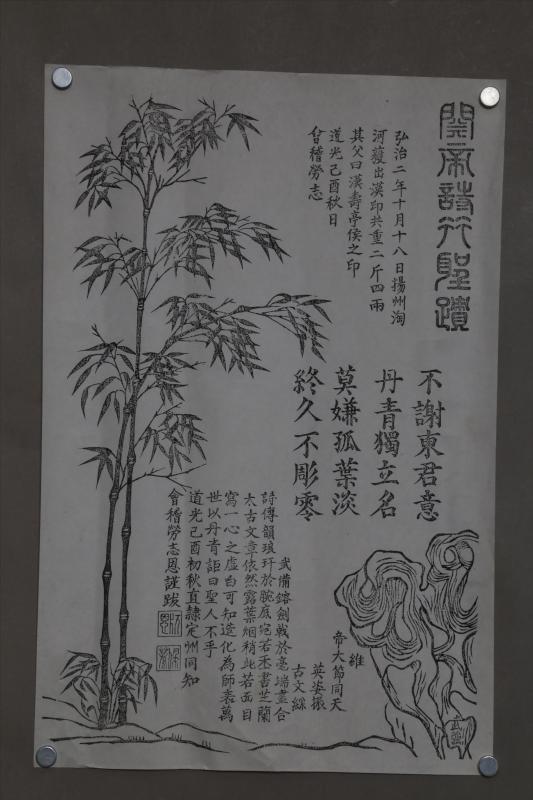 關帝詩竹聖蹟
弘治二年十月十八日揚州淘
河獲出漢印共重二斤四兩
其文曰漢壽亭侯之印
道光己酉秋日
會稽勞志
不謝東君意
丹青獨立名
莫嫌孤葉淡
終久不彫零
維
帝大節同天
英姿振
古文綵
武備鎔劍戟於毫端畫合
詩傳韻琅玕於腕底宛若丞書芝蘭
太古文章依然露葉烟梢此若面目
寫一心之虛白可知造化為師表萬
世以丹青詎曰聖人不乎
道光己酉初秋直隸定州同知
會稽勞志恩謹跋
武強